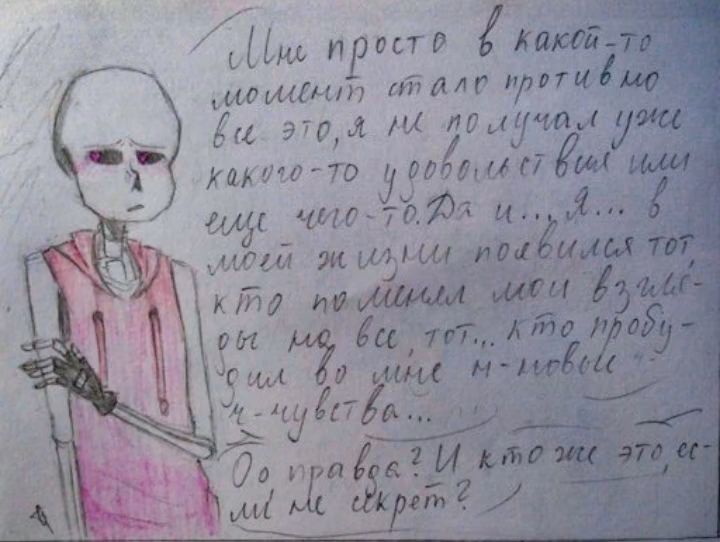 Мне просто в какой-то
момент стало противно
все это, я не получал уже
какого-то удовольствия или
еще чего-то. Да и... Я... в
моей жизни появился тот,
кто поменял мои взгля-
ды на все, тот... кто пробу-
дил во мне н-новые
ч-чувства...
Оо правда? И кто же это, ес-
ли не секрет?